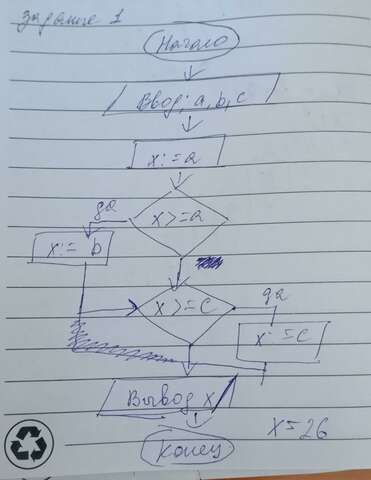 задание 1
Начало
Ввод; a, b, c
x:=a
x>=a
да
x:= b
x>=c
да
x:=c
Вывод x
x=26
конец